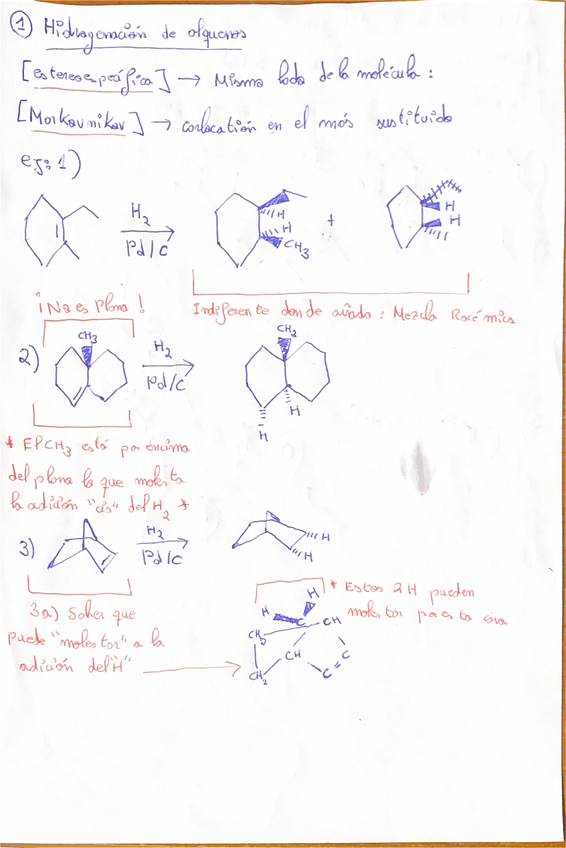 ① Hidrogenación de alquenos
[estereoespecífica] → Misma lado de la molécula :
[Markovnikov] → colocatión en el más sustituido
ej: 1)
H₂
Pd/C
H
H
CH₃
+
H
H
¡No es plana !
Indiferente donde añada : Mezcla Racémica
2)
CH₃
H₂
Pd/C
CH₃
H
H
* El CH₃ está por encima
del plano lo que molesta
la adición "cis" del H₂ *
3)
H₂
Pd/C
H
H
3a) Saber que
puede "molestar" a la
adición del "H"
* Estos 2 H pueden
molestar por esta
H
H
C
CH
CH₂
CH
C
C
CH₂